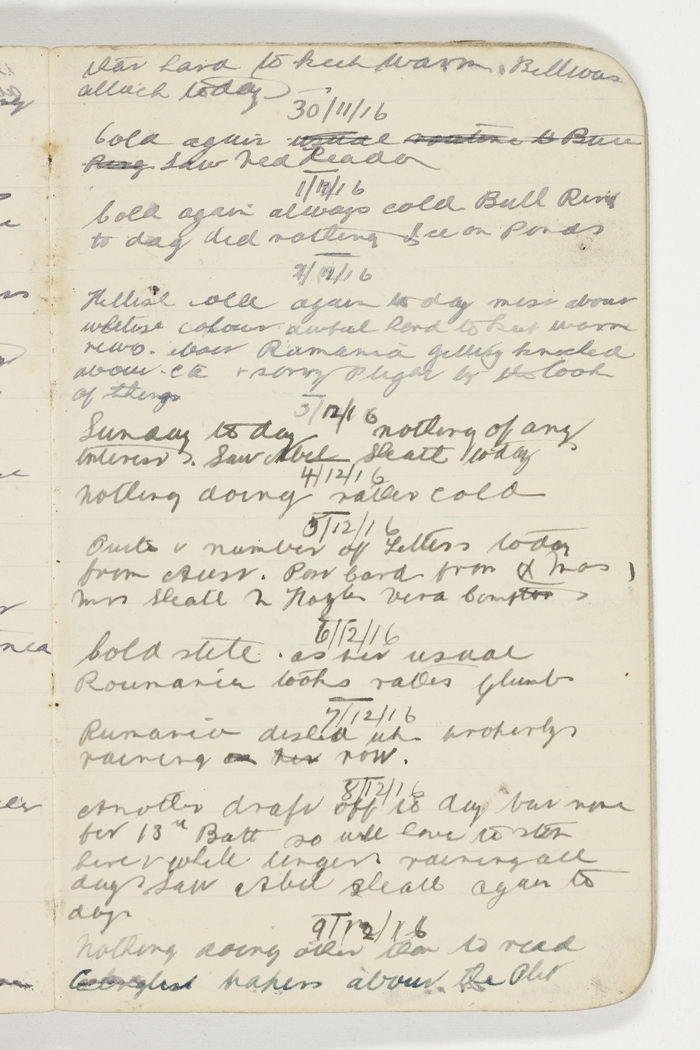 hard to keep warm. Bill was
attach today
30/11/16
Cold again usual routine to Bull
Ring Saw Ned Reador
1/12/16
Cold again always cold Bull Ring
to day did nothing Ice on Ponds
2/12/16
Hellish cold again to day mess about
awful hard to keep warm
news. Rumania getting knocked
about. & sorry plight by the look
of things
3/12/16
Sunday to day nothing of any
interest. Saw Abel Sleath today
4/12/16
Nothing doing rather cold
5/12/16
Quite a number of Letters today
from Aust. Post Card from (Xmas)
Mrs Sleath Vera Compton
6/12/16
Cold still. as per usual
Roumania looks rather glum
7/12/16
Rumania dished up properly
raining on her now.
8/12/16
Another draft off to day but none
for 13th Batt so will have to stop
here a while longer raining all
day Saw Abel Sleath again to
day
9/12/16
Nothing doing other than to read
English papers about the Plot